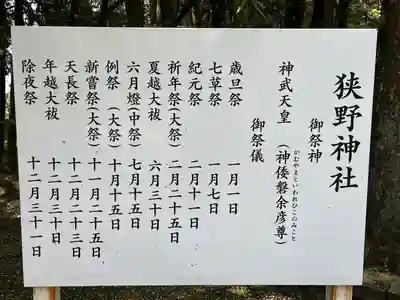 狭野神社
御祭神
神武天皇 （神倭磐余彦尊）
かむやまといわれひこのみこと
御祭儀
歳旦祭 一月一日
七草祭 一月七日
紀元祭 二月十一日
祈年祭（大祭） 二月二十五日
夏越大祓 六月三十日
六月燈（中祭） 七月十五日
例祭 （大祭） 十月十五日
新嘗祭（大祭） 十一月二十五日
天長祭 十二月二十三日
年越大祓 十二月三十日
除夜祭 十二月三十一日